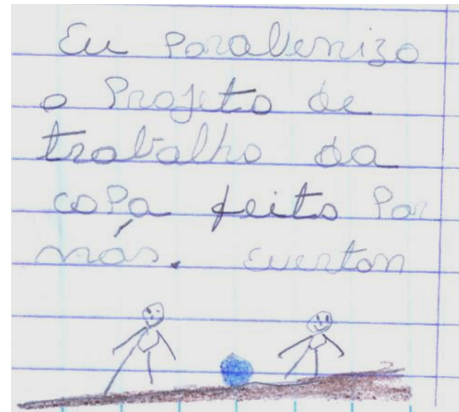 Eu Parabenizo
o Projeto de
trabalho da
copa feito Por
nós. everton